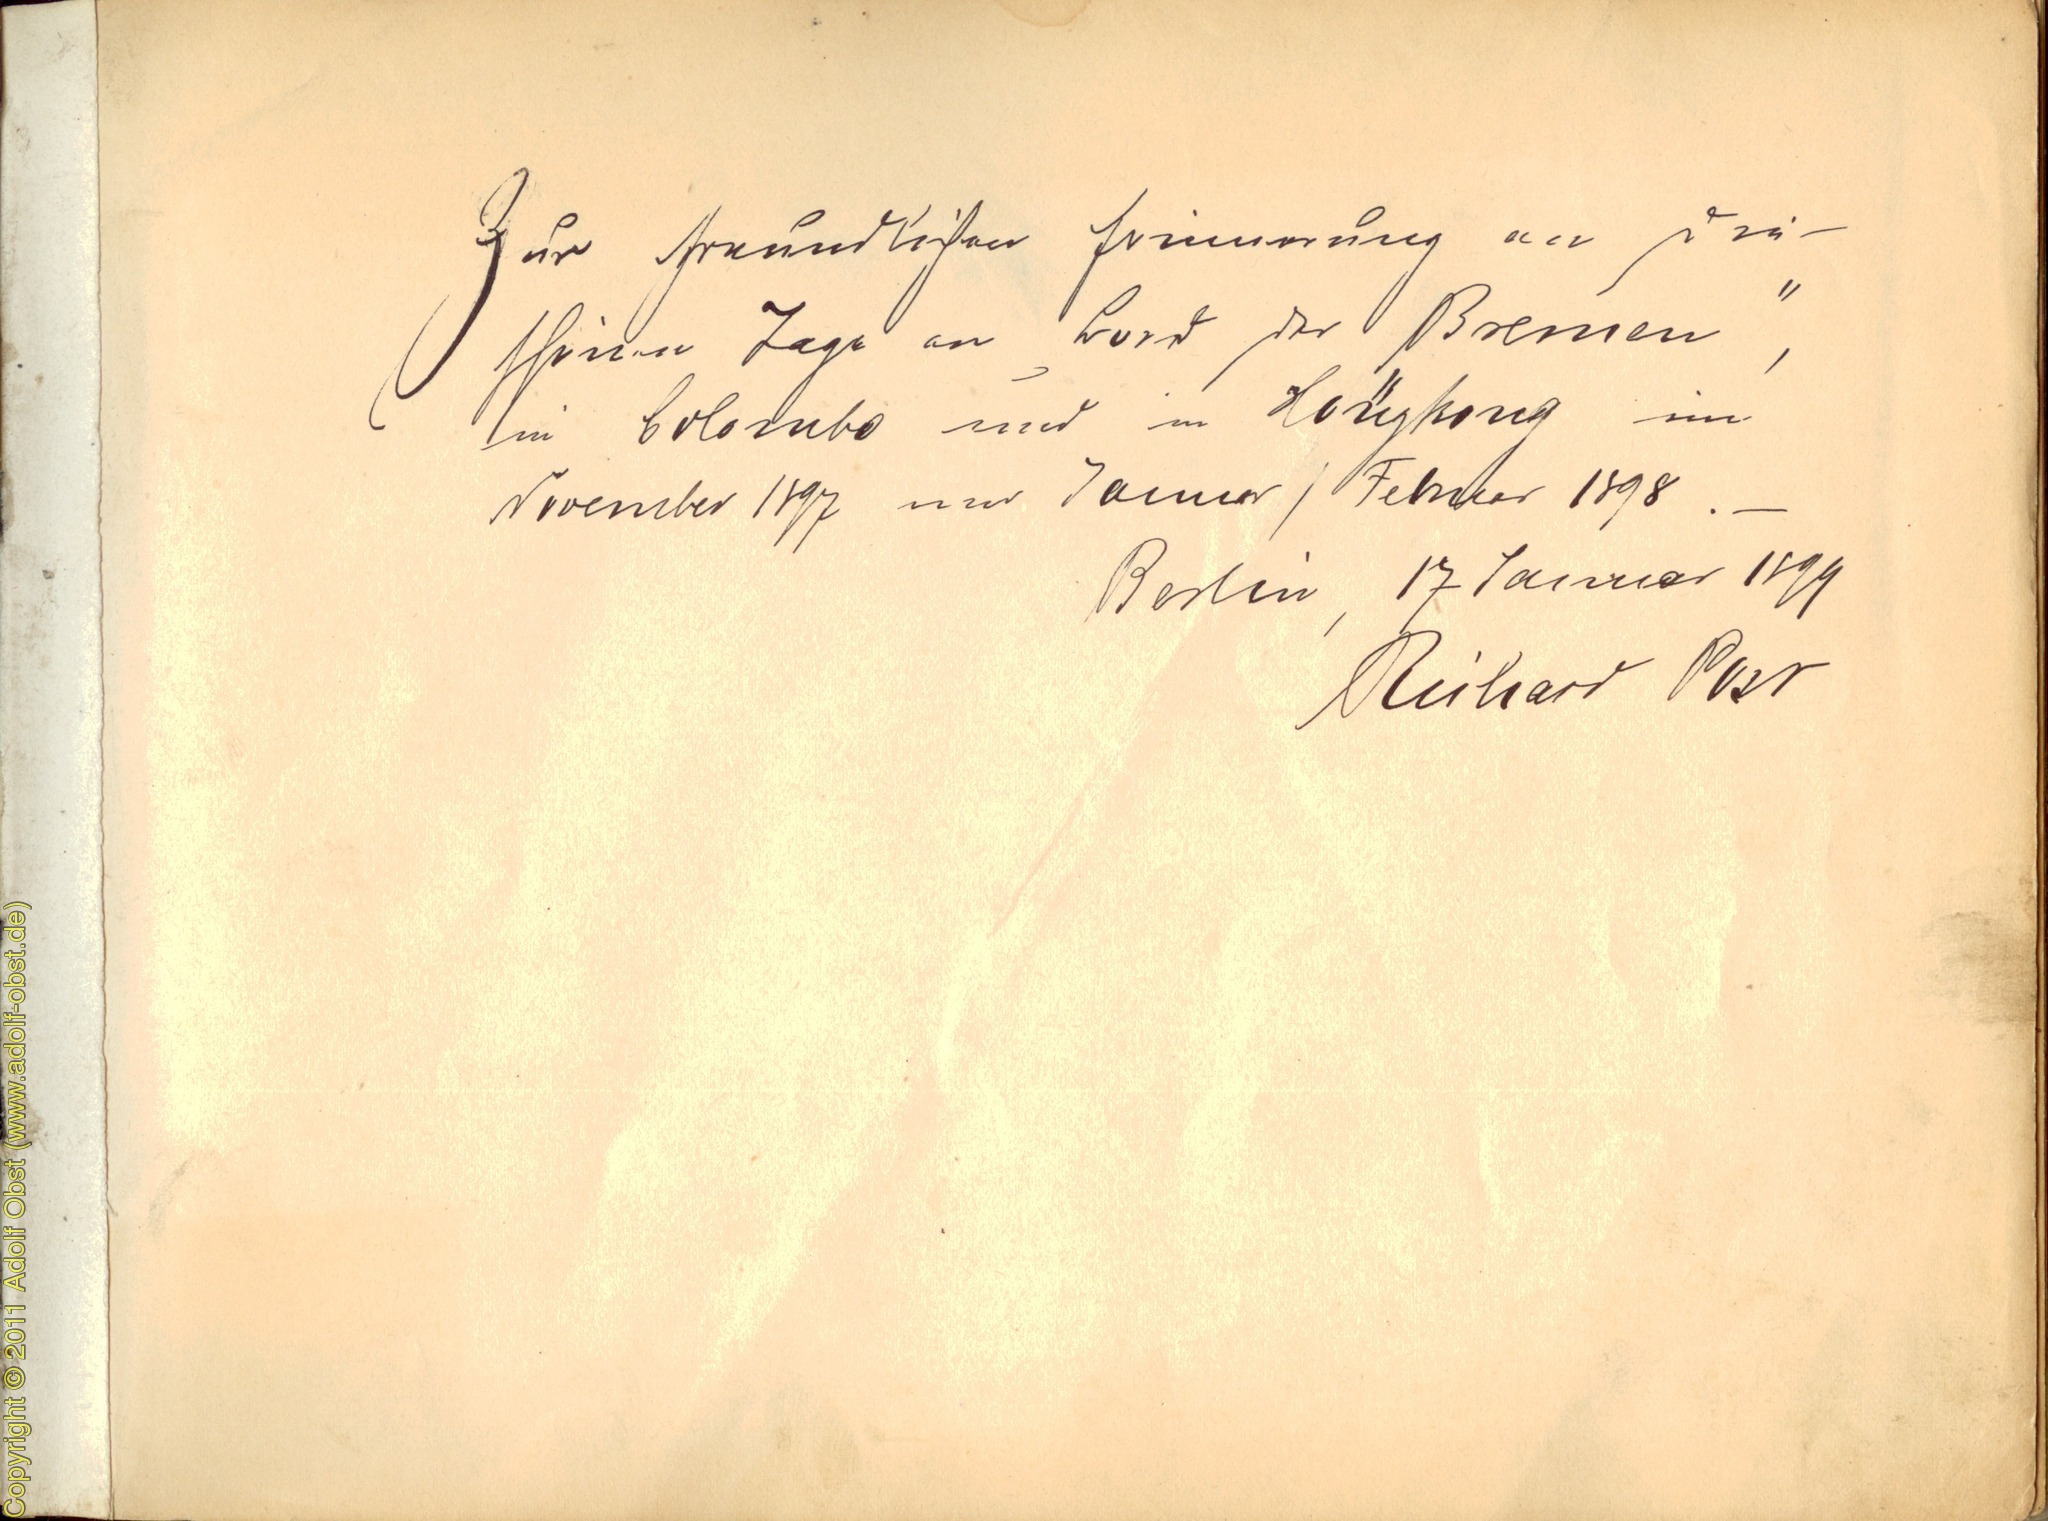 Zur freundlichen Erinnerung an die
schönen Tage an Bord der „Bremen“,
in Colombo und in Hongkong im
November 1897 und Januar / Februar 1898. —
Berlin, 17 Januar 1899
Richard Post
Copyright © 2011 Adolf Obst (www.adolf-obst.de)